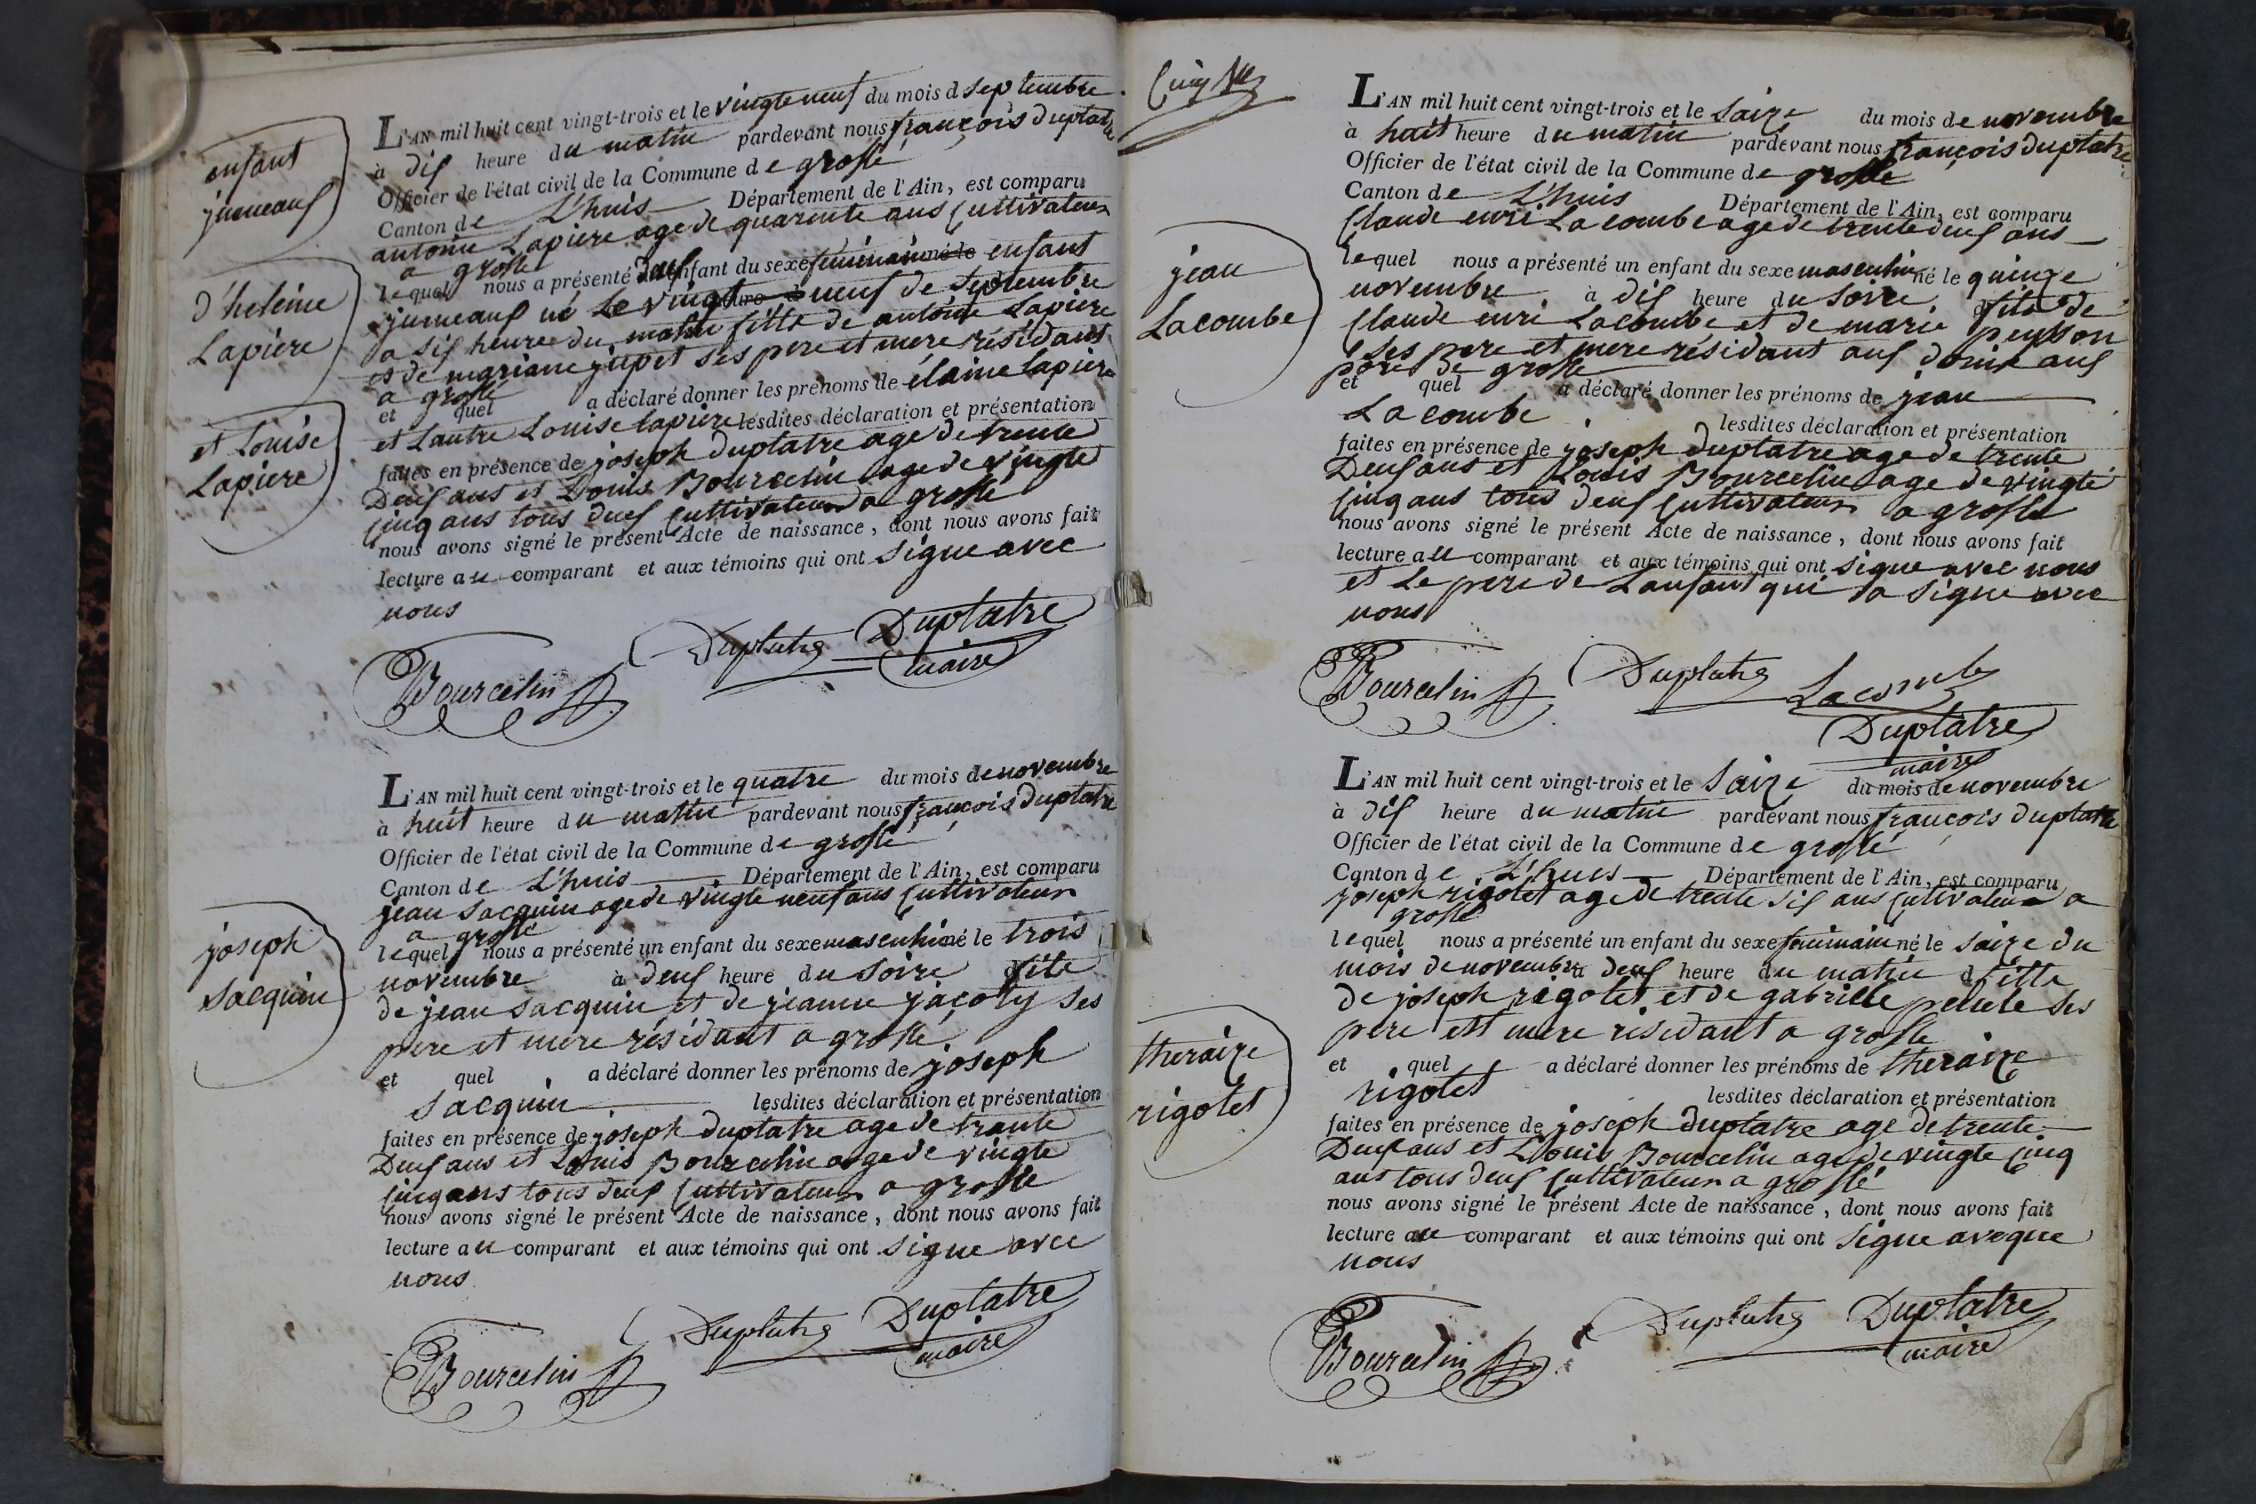 enfant
jumeaux
d'heleine
Lapiere
et Louise
Lapiere
L'AN mil huit cent vingt-trois et le vingte neuf du mois d septembre
à dix heure du matin pardevant nous françois duplatre
Officier de l'état civil de la Commune de grossé
Canton de L'huis Département de l'Ain, est comparu
antoine Lapiere age de quarente ans Cultivateur
a grosse
lequel nous a présenté deux enfant du sexe feminain né le enfant
jumeaux né Le vingt neuf de Septembre
a six heuree du matin fille de antoine Lapiere
et de mariane jupet ses pere et mere résidant
a grosse
et quel a déclaré donner les prénoms de élaine lapiere
et Lautre Louise lapiere lesdites déclaration et présentation
faites en présence de joseph duplatre age de trente
Deux ans et Louis Bourcelin age de vingte
Cinq ans tous deux Cultivateur a grossé
nous avons signé le présent Acte de naissance, dont nous avons fait
lecture au comparant et aux témoins qui ont signe avec
nous
Bourcelin Duplatre Duplatre
maire
joseph
sacquin
L'AN mil huit cent vingt-trois et le quatre du mois de novembre
à huit heure du matin pardevant nous françois Duplatre
Officier de l'état civil de la Commune de grossé
Canton de L'huis Département de l'Ain, est comparu
jean Sacquin age de vingte neuf ans Cultivateur
a grossé
lequel nous a présenté un enfant du sexe masculin né le trois
novembre à deux heure du soire d fils
de jean sacquin et de jeanne jacoty ses
pere et mere résidant a grossé
et quel a déclaré donner les prénoms de joseph
sacquin lesdites déclaration et présentation
faites en présence de joseph duplatre age de trante
Deux ans et Louis Bourcelin age de vingte
Cinq ans tous deux Cultivateur a grosse
nous avons signé le présent Acte de naissance, dont nous avons fait
lecture au comparant et aux témoins qui ont signe avec
nous
Bourcelin Duplatre Duplatre
maire
jean
Lacombe
L'AN mil huit cent vingt-trois et le saize du mois de novembre
à huit heure du matin pardevant nous françois duplatre
Officier de l'état civil de la Commune de grosse
Canton de L'huis Département de l'Ain, est comparu
Claude enri Lacombe age de trente deux ans
lequel nous a présenté un enfant du sexe masculin né le quinze
novembre à dix heure du soire d fils de
Claude enri Lacombe et de marie peysson
ses pere et mere résidant aux domx aus
pore de grosse
et quel a déclaré donner les prénoms de jean
Lacombe lesdites déclaration et présentation
faites en présence de joseph duplatre age de trente
Deux ans et Louis Bourcelin age de vingte
Cinq ans tous deux Cultivateur a grosse
nous avons signé le présent Acte de naissance, dont nous avons fait
lecture au comparant et aux témoins qui ont signe avec nous
et Le pere de Lanfant qui a signe avec
nous
Bourcelin Duplatre Lacombe
Duplatre
maire
theraize
rigolet
L'AN mil huit cent vingt-trois et le saize du mois de novembre
à dix heure du matin pardevant nous francois duplatre
Officier de l'état civil de la Commune de grossé
Canton de L'huis Département de l'Ain, est comparu
joseph rigolet age de trente six ans Cultivateur a
grosse
lequel nous a présenté un enfant du sexe feminain né le saize du
mois de novembre à deux heure du matin d fille
de joseph rigolet et de gabrielle pelule ses
pere ett mere résidant a grosse
et quel a déclaré donner les prénoms de theraize
rigolet lesdites déclaration et présentation
faites en présence de joseph duplatre age de trente
Deux ans et Louis Bourcelin age de vingte cinq
ans tous deux Cultivateur a grossé
nous avons signé le présent Acte de naissance, dont nous avons fait
lecture au comparant et aux témoins qui ont signe aveque
nous
Bourcelin Duplatre Duplatre
maire